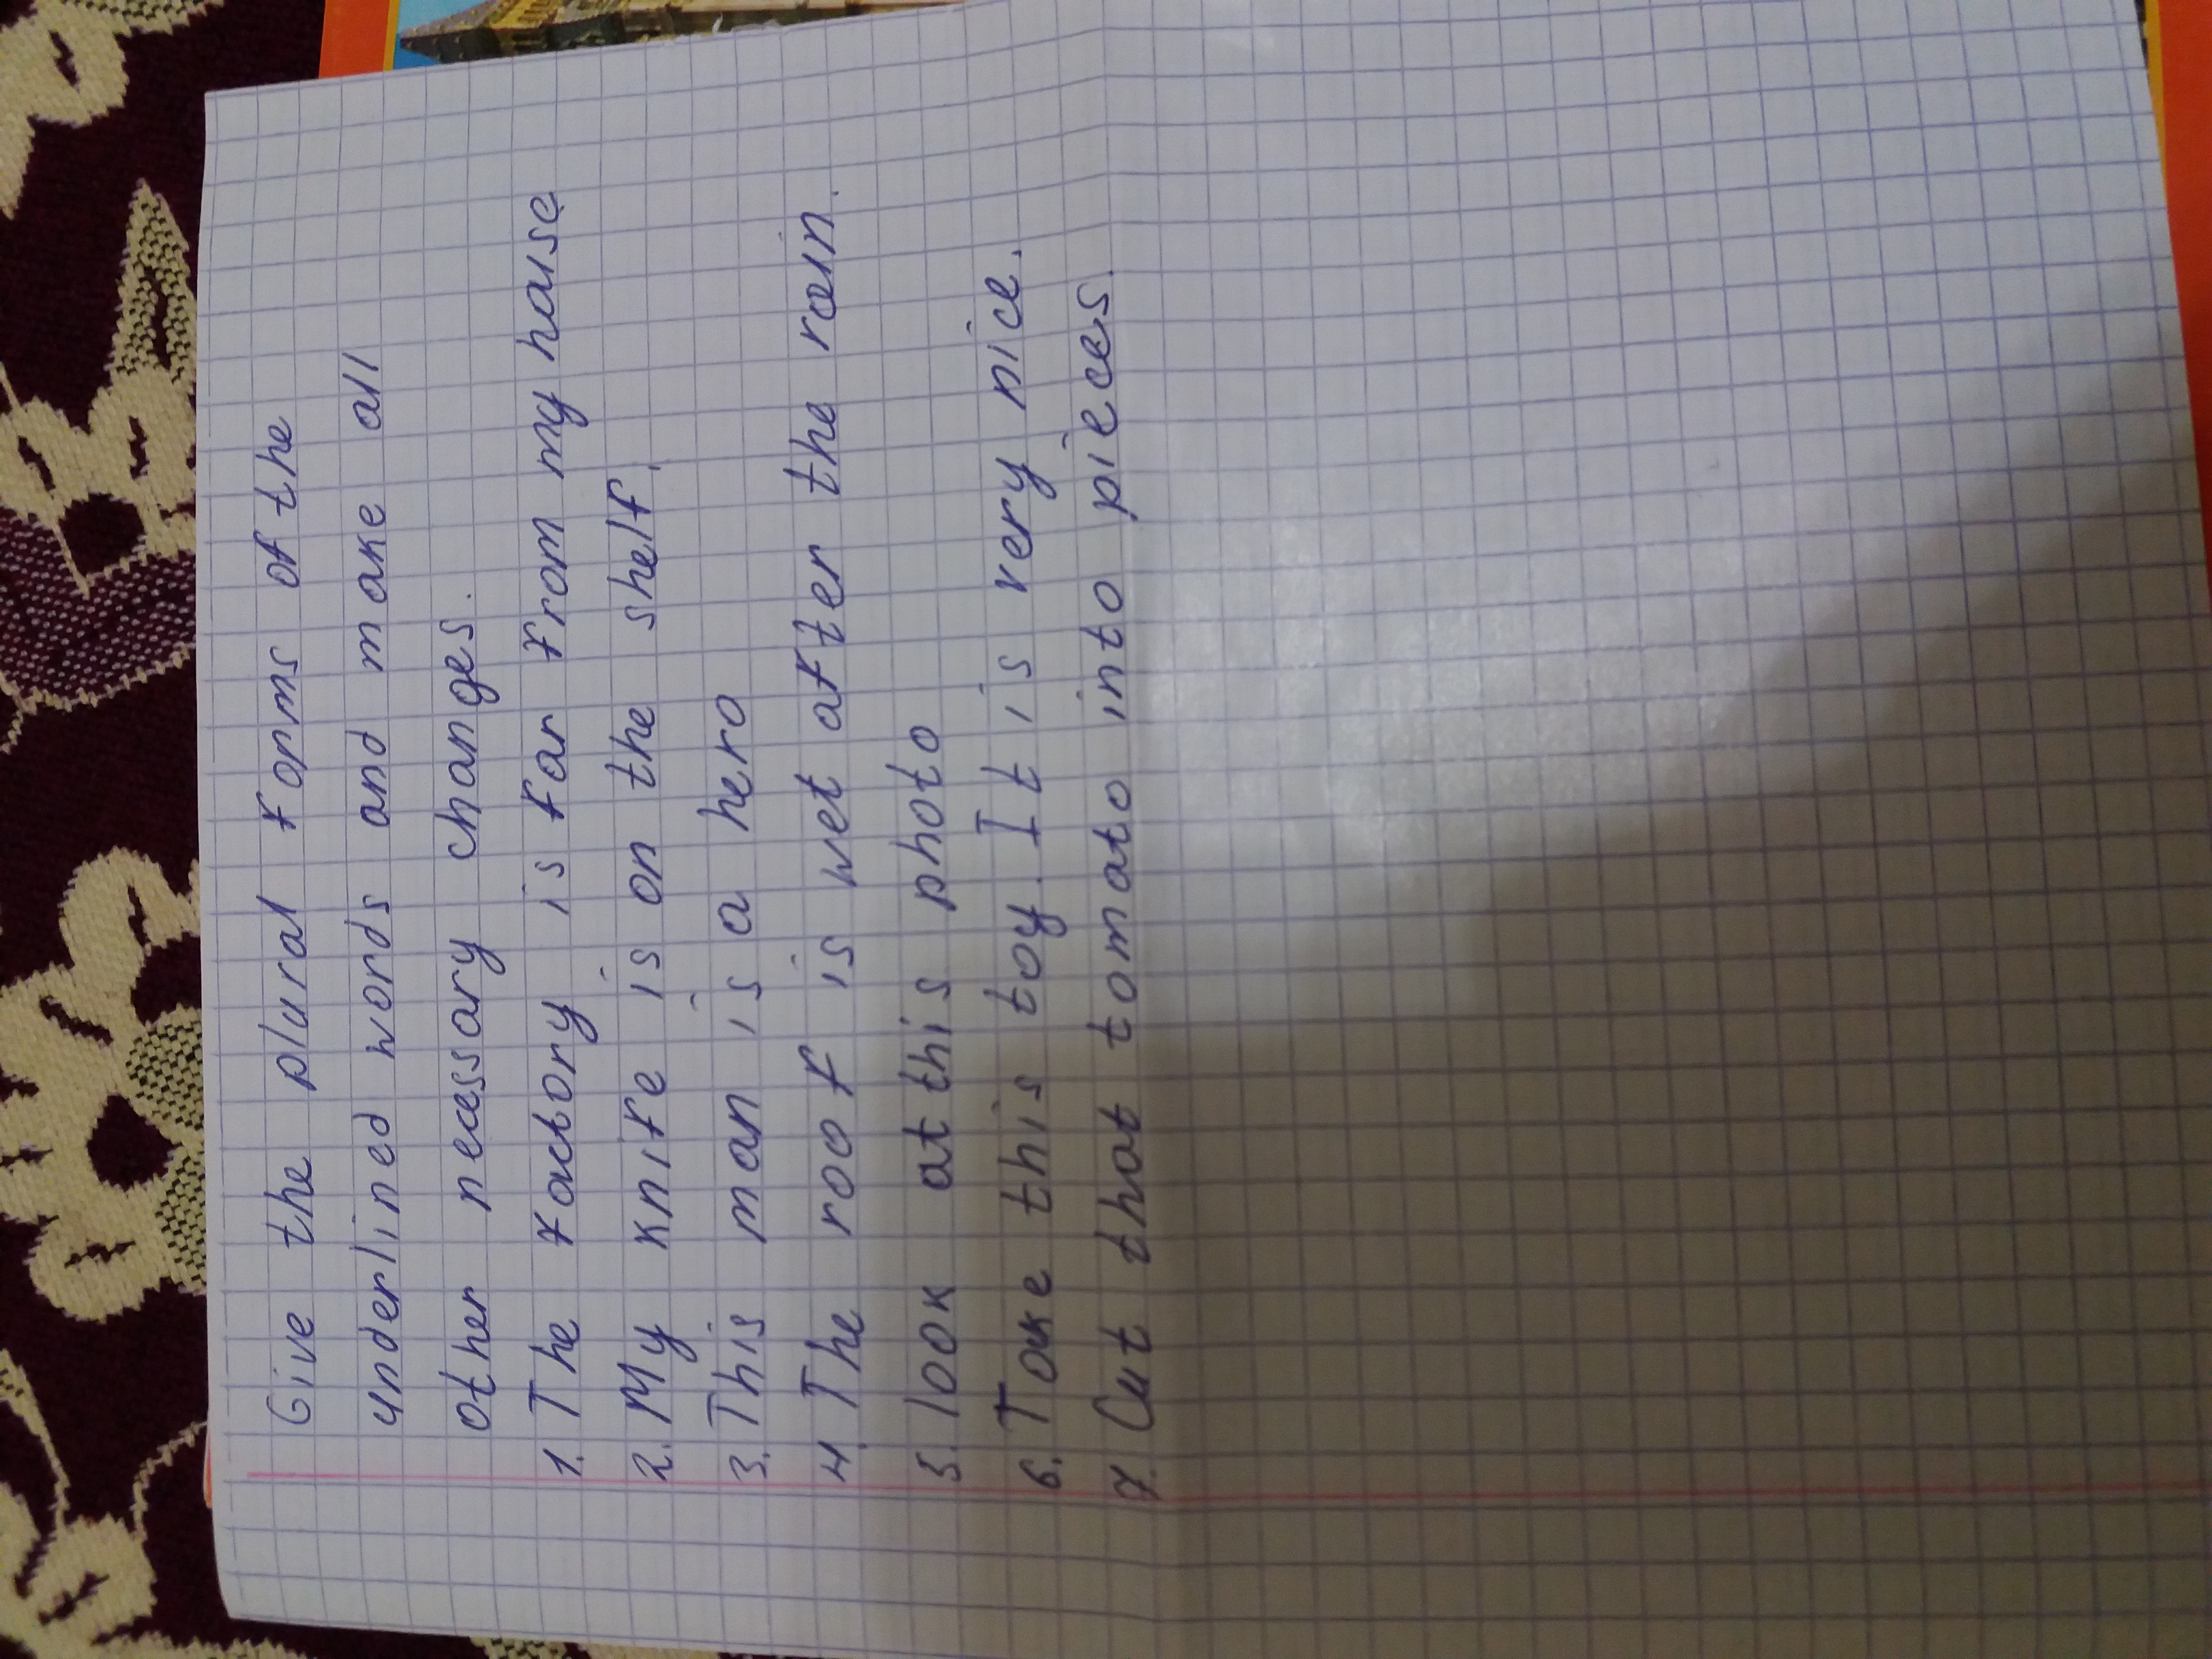 Give the plural forms of the
underlined words and make all
other necessary changes.
1. The factory is far from my house
2. My knife is on the shelf.
3. This man is a hero
4. The roof is wet after the rain.
5. look at this photo
6. Take this toy. It is very nice.
7. Cut that tomato into pieces.